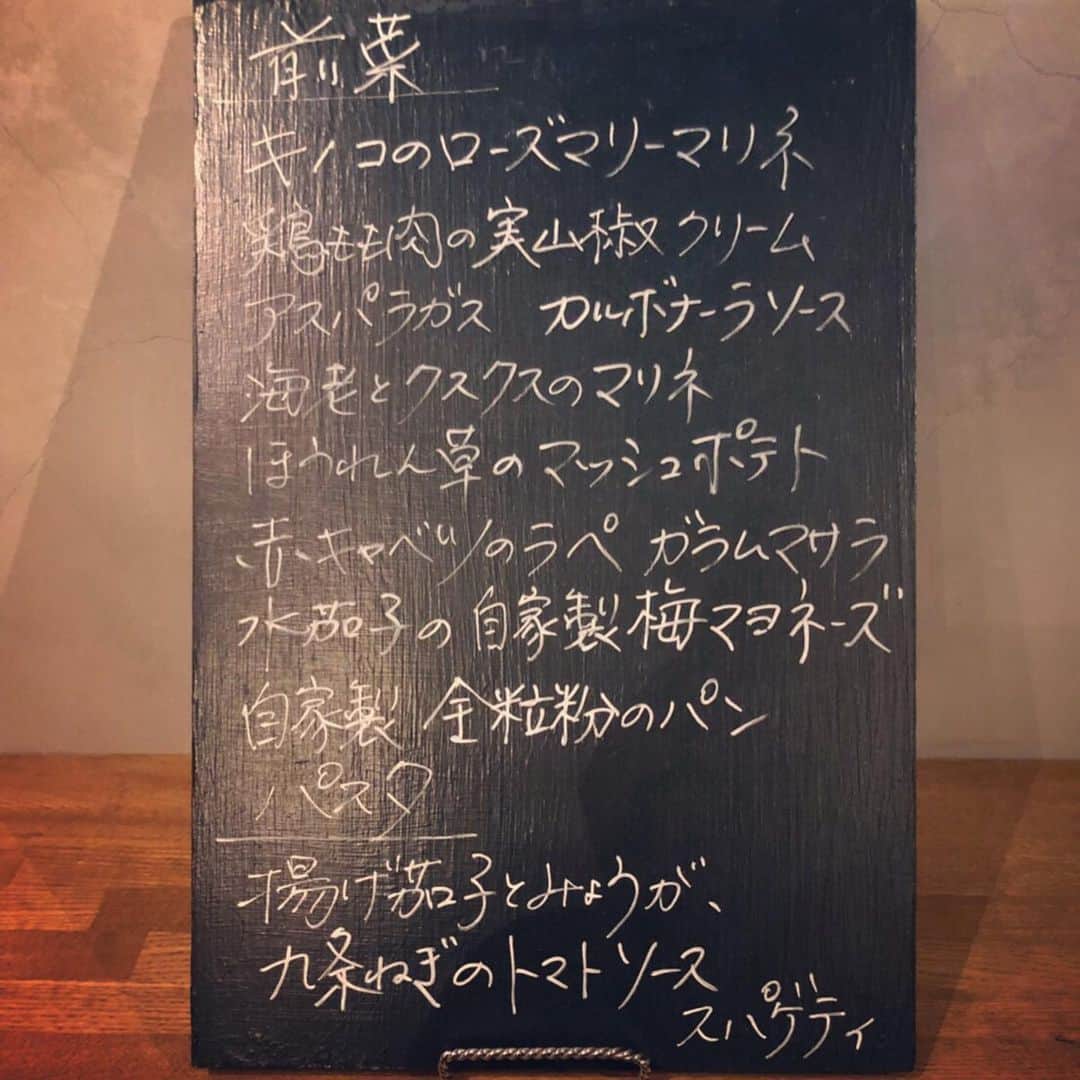 前菜
キノコのローズマリーマリネ
鶏もも肉の実山椒クリーム
アスパラガス カルボナーラソース
海老とクスクスのマリネ
ほうれん草のマッシュポテト
赤キャベツのラペ ガラムマサラ
水茄子の自家製梅マヨネーズ
自家製 全粒粉のパン
パスタ
揚げ茄子とみょうが、
九条ねぎのトマトソース
スパゲティ